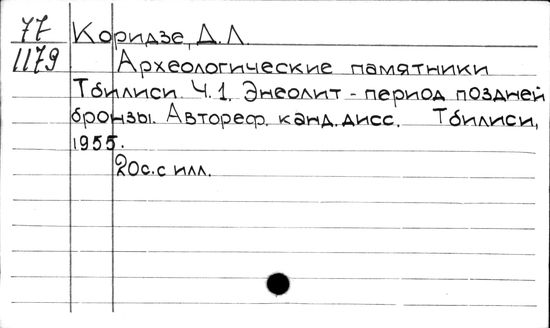 77 Коридзе, Д.Л.
1179 Археологические памятники
Тбилиси. Ч.1. Энеолит - период поздней
бронзы. Автореф. канд. дисс. Тбилиси,
1955.
20с. с илл.